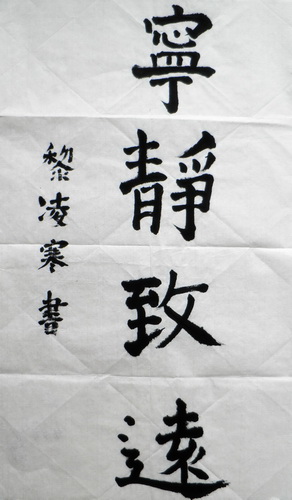 寧靜致遠
黎凌寒書